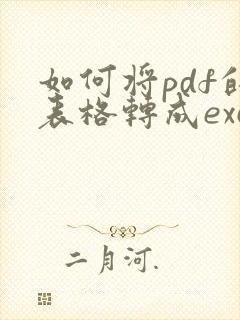 如何将pdf的
表格轉成exc
二月河.